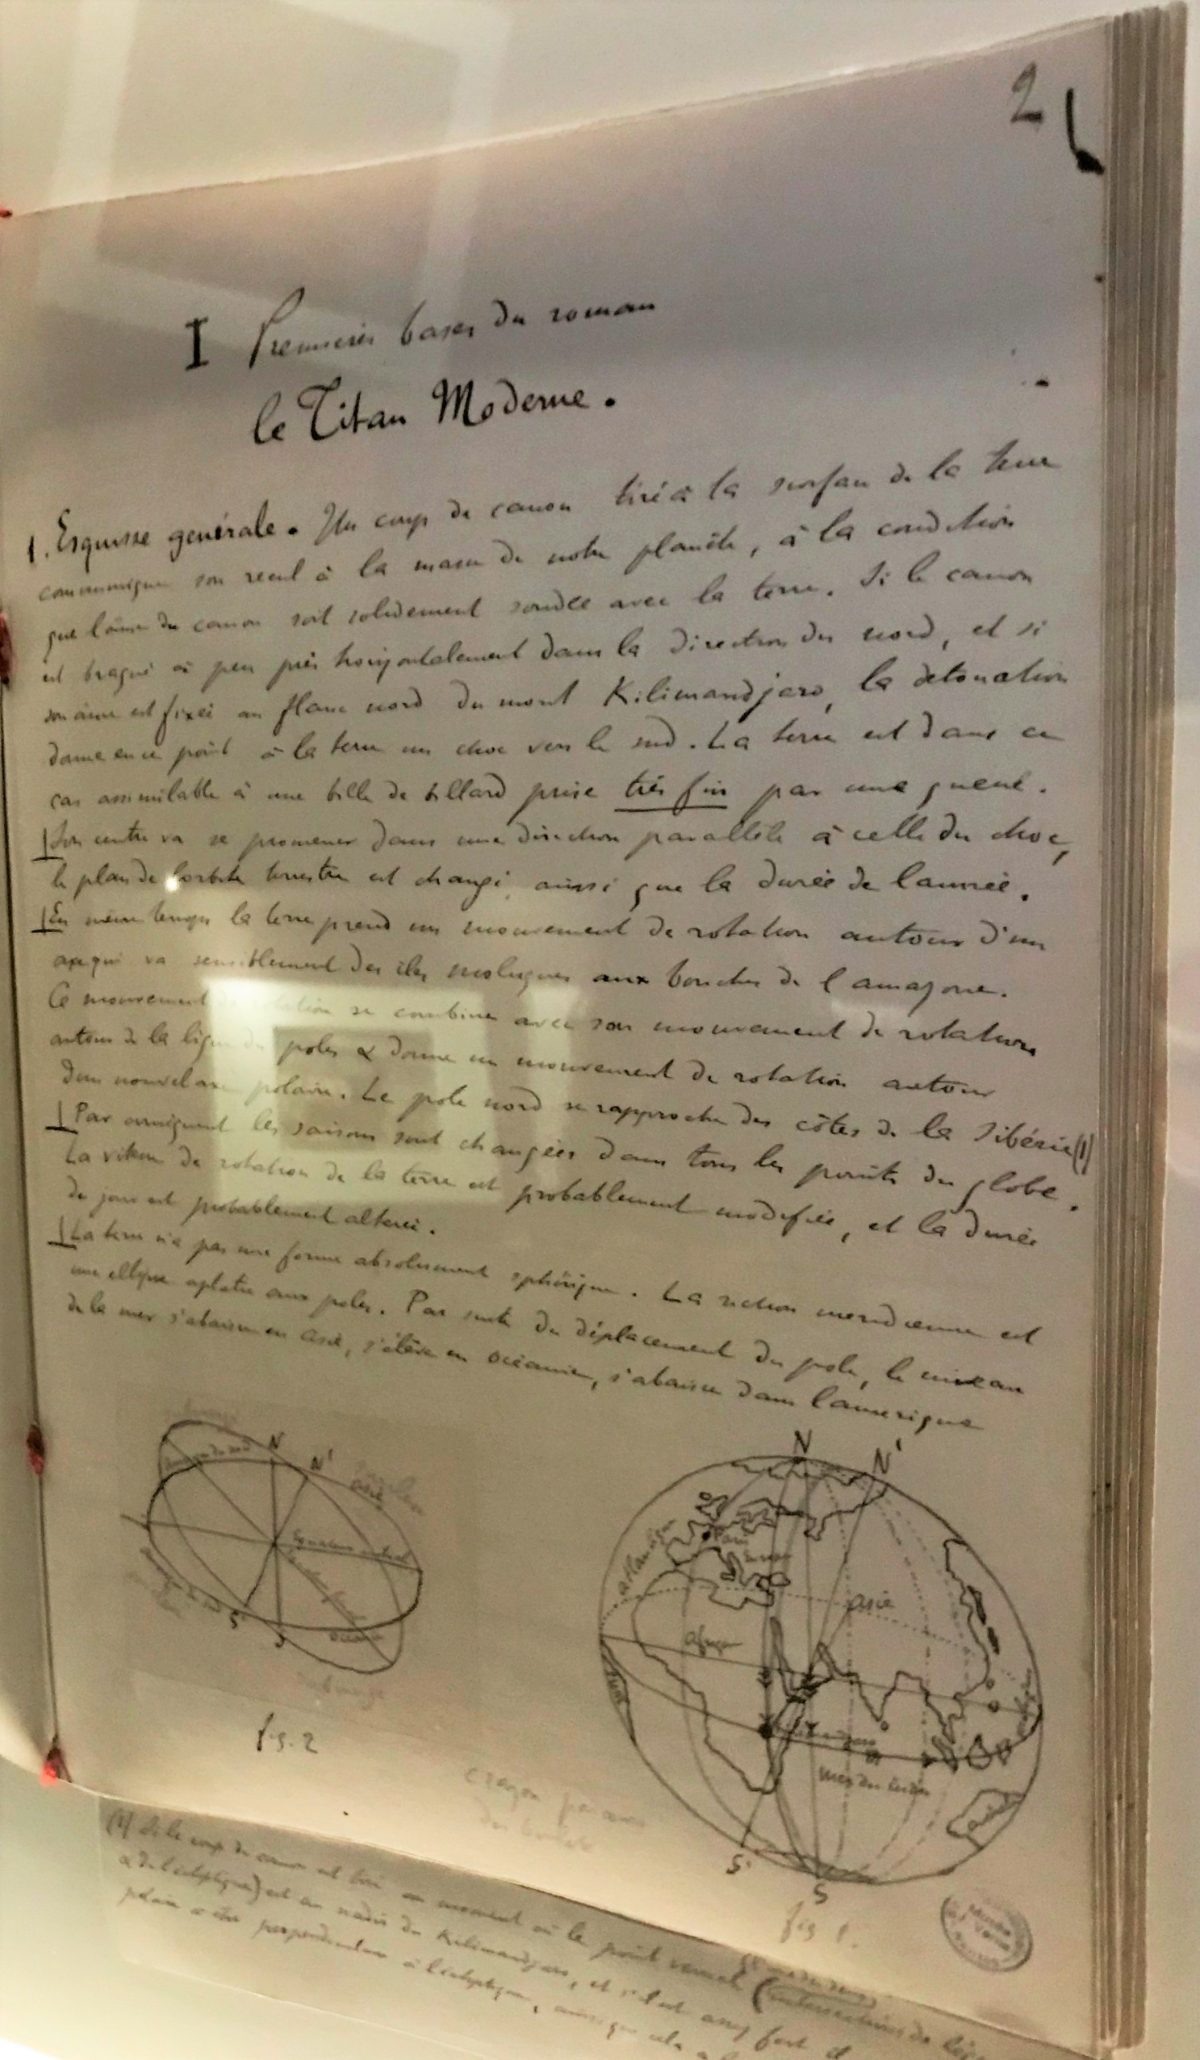 2
I Premières bases du roman
le Titan Moderne.
1. Esquisse générale. Un coup de canon tiré à la surface de la terre
communique son recul à la masse de notre planète, à la condition
que l'âme du canon soit solidement soudée avec la terre. Si le canon
est braqué à peu près horizontalement dans la direction du nord, et si
son âme est fixée au flanc nord du mont Kilimandjaro, la détonation
donne en ce point à la terre un choc vers le sud. La terre est dans ce
cas assimilable à une bille de billard prise très fin par une queue.
Son centre va se promener dans une direction parallèle à celle du choc,
le plan de l'orbite terrestre est changé, ainsi que la durée de l'année.
En même temps la terre prend un mouvement de rotation autour d'un
axe qui va sensiblement des îles moluques aux bouches de l'amazone.
Ce mouvement se combine avec son mouvement de rotation
autour de la ligne des poles & donne un mouvement de rotation autour
d'un nouvel axe polaire. Le pole nord se rapproche des côtes de la Sibérie (1)
Par conséquent les saisons sont changées dans tous les points du globe.
La vitesse de rotation de la terre est probablement modifiée, et la durée
du jour est probablement altérée.
La terre n'a pas une forme absolument sphérique. La section méridienne est
une ellipse aplatie aux poles. Par suite du déplacement du pole, le niveau
de la mer s'abaisse en asie, s'élève en océanie, s'abaisse dans l'amerique
N
N'
asie
Equateur
Océanie
S'
S
fig. 2
N
N'
atlantique
Paris
asie
afrique
Kilimandjaro
Mer des Indes
S'
S
fig 1.
crayon
(1) Si le coup de canon est tiré au moment où le point vernal (intersection de
& de l'écliptique) est au nadir du Kilimandjaro, et s'il est assez fort
perpendiculaire à l'écliptique, ainsi que cela